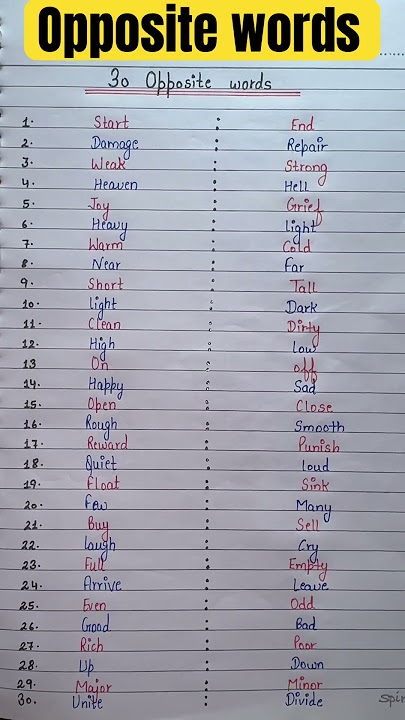 Opposite words
30 Opposite words
1. Start : End
2. Damage : Repair
3. Weak : Strong
4. Heaven : Hell
5. Joy : Grief
6. Heavy : Light
7. Warm : Cold
8. Near : Far
9. Short : Tall
10. Light : Dark
11. Clean : Dirty
12. High : Low
13 On : Off
14. Happy : Sad
15. Open : Close
16. Rough : Smooth
17. Reward : Punish
18. Quiet : Loud
19. Float : Sink
20. Few : Many
21. Buy : Sell
22. Laugh : Cry
23. Full : Empty
24. Arrive : Leave
25. Even : Odd
26. Good : Bad
27. Rich : Poor
28. Up : Down
29. Major : Minor
30. Unite : Divide